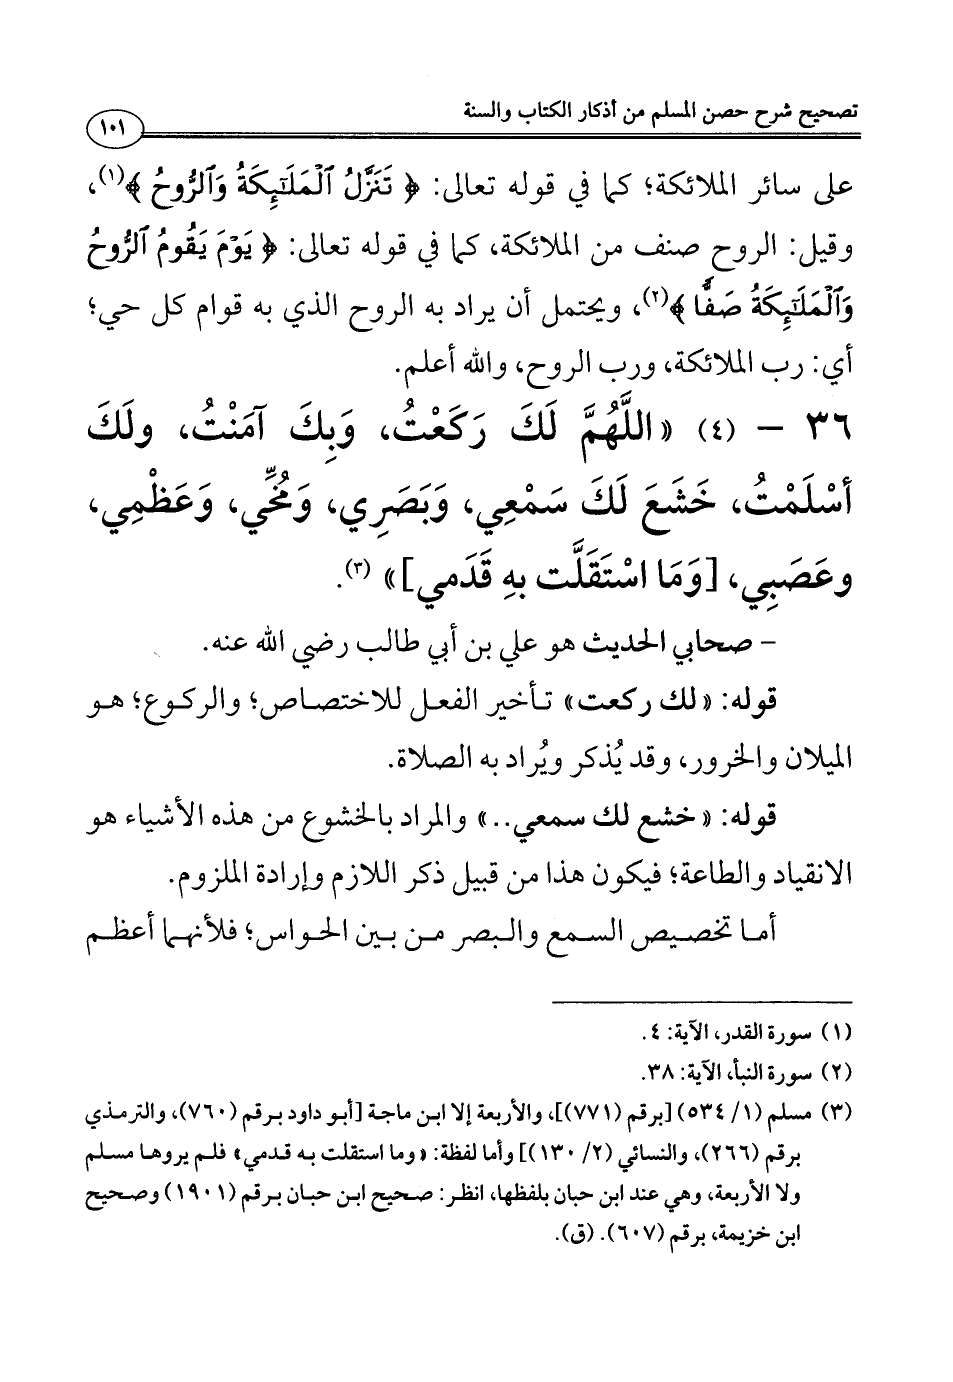 تصحيح شرح حصن المسلم من أذكار الكتاب والسنة
١٠١
على سائر الملائكة؛ كما في قوله تعالى: ﴿ تَنَزَّلُ ٱلْمَلَٰٓئِكَةُ وَٱلرُّوحُ ﴾(١)،
وقيل: الروح صنف من الملائكة، كما في قوله تعالى: ﴿ يَوْمَ يَقُومُ ٱلرُّوحُ
وَٱلْمَلَٰٓئِكَةُ صَفًّا ﴾(٢)، ويحتمل أن يراد به الروح الذي به قوام كل حي؛
أي: رب الملائكة، ورب الروح، والله أعلم.
٣٦ – (٤) «اللَّهُمَّ لَكَ رَكَعْتُ، وَبِكَ آمَنْتُ، ولَكَ
أسْلَمْتُ، خَشَعَ لَكَ سَمْعِي، وَبَصَرِي، وَمُخِّي، وَعَظْمِي،
وعَصَبِي، [وَمَا اسْتَقَلَّت بهِ قَدَمي]» (٣).
– صحابي الحديث هو علي بن أبي طالب رضي الله عنه.
قوله: «لك ركعت» تأخير الفعل للاختصاص؛ والركوع؛ هو
الميلان والخرور، وقد يُذكر ويُراد به الصلاة.
قوله: «خشع لك سمعي..» والمراد بالخشوع من هذه الأشياء هو
الانقياد والطاعة؛ فيكون هذا من قبيل ذكر اللازم وإرادة الملزوم.
أما تخصيص السمع والبصر من بين الحواس؛ فلأنهما أعظم
(١) سورة القدر، الآية: ٤.
(٢) سورة النبأ، الآية: ٣٨.
(٣) مسلم (١/ ٥٣٤) [برقم (٧٧١)]، والأربعة إلا ابن ماجة [أبو داود برقم (٧٦٠)، والترمذي
برقم (٢٦٦)، والنسائي (٢/ ١٣٠)] وأما لفظة: «وما استقلت به قدمي» فلم يروها مسلم
ولا الأربعة، وهي عند ابن حبان بلفظها، انظر: صحيح ابن حبان برقم (١٩٠١) وصحيح
ابن خزيمة، برقم (٦٠٧). (ق).